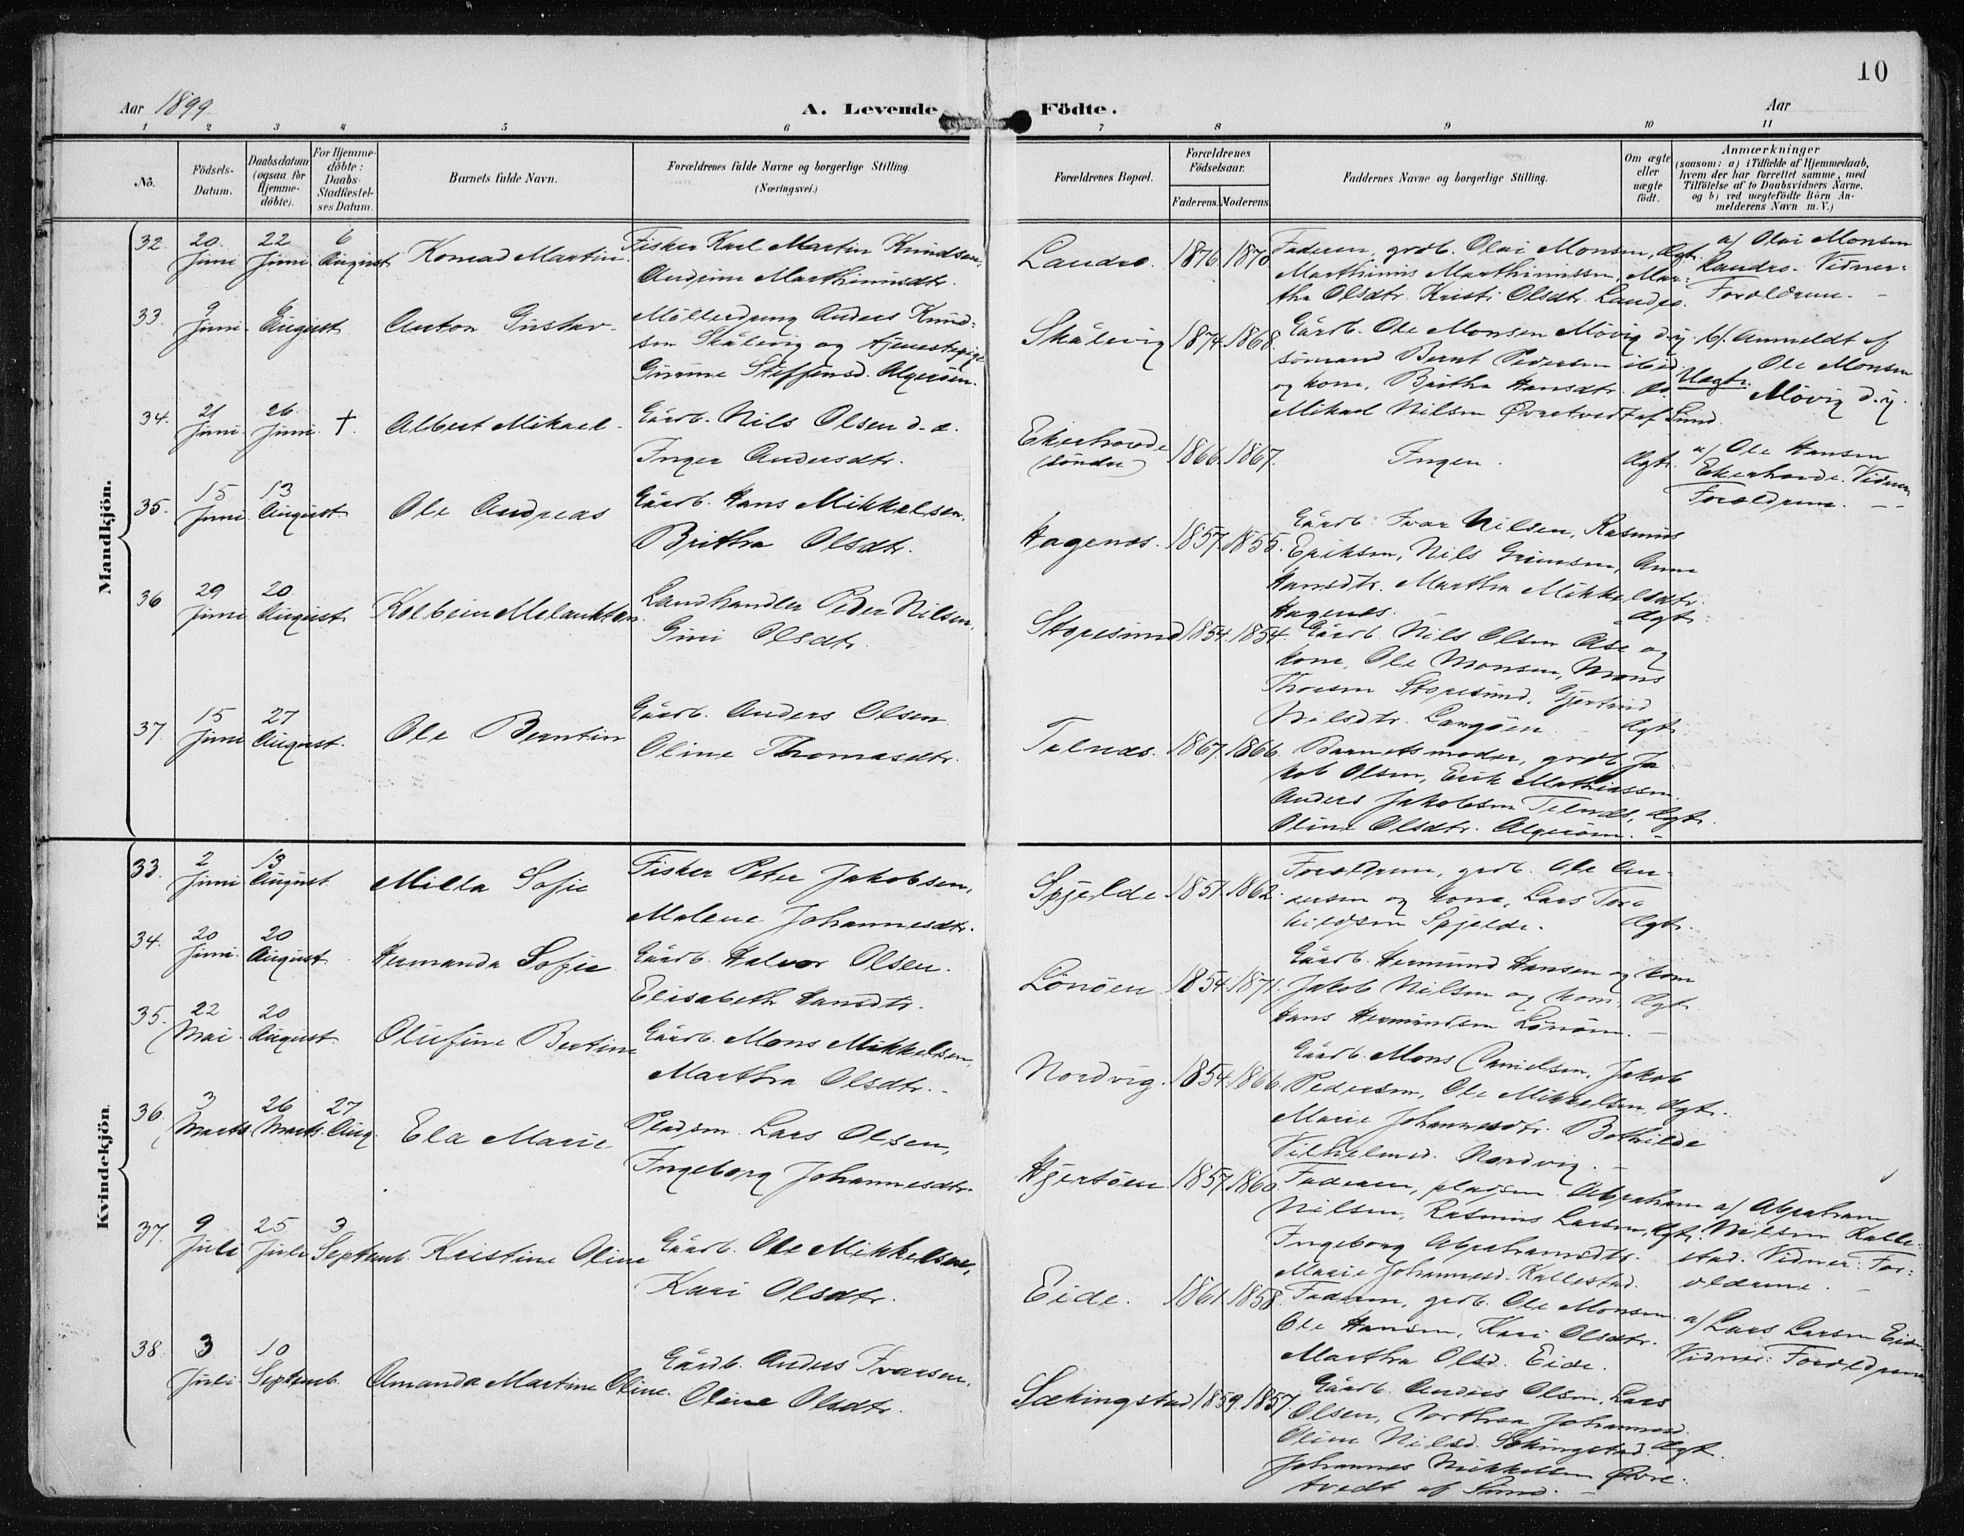 10
Aar 1899.
A. Levende Födte.
Aar
1 2 3 4 5 6 7 8 9 10 11
No.
Födsels-Datum.
Daabsdatum (ogsaa for Hjemme-döbte).
For Hjemme-döbte: Daabs-Stadfæstel-ses Datum.
Barnets fulde Navn.
Forældrenes fulde Navne og borgerlige Stilling.
(Næringsvei.)
Forældrenes Bopæl.
Forældrenes Födselsaar.
Faderens. Moderens.
Faddernes Navne og borgerlige Stilling.
Om ægte eller uægte födt.
Anmærkninger
(saasom: a) i Tilfælde af Hjemmedaab,
hvem der har forrettet samme, med
Tilföielse af to Daabsvidners Navne,
og b) ved uægtefödte Börn An-
melderens Navn m. V.)
Mandkjön.
32. 20 Juni 22 Juni 6 August Konrad Martin. Fisker Karl Martin Knudsen,
Andrine Marthinusdtr.
Landro. 1876 1870 Faderen, grdb. Olai Monsen, Ægt.
Marthinus Marthinussen, Mar-
tha Olsdtr. Kristi Olsdtr. Landro.
a/ Olai Monsen
Landro. Vidner:
Forældrene.
33. 9 Juni 6 August Anton Gustav Möllerdreng Anders Knud-
sen Skålevig og tjenestepige
Gurine Steffensd. Algeröen.
Skålevig 1874. 1868. Gårdb. Ole Monsen Movig d.y.
sömand Bernt Pedersen ibid
og kone, Britha Hansdtr. do.
Mikael Nilsen Övretvedt af Sund.
Uægt.
b/ Anmeldt af
Ole Monsen
Movig d.y.
34. 21 Juni 26 Juni † Albert Mikael Gårdb. Nils Olsen d.æ.
Inger Andersdtr.
Ekerhovde
(söndre)
1866. 1867. Ingen. Ægt.
a/ Ole Hansen
Ekerhovde. Vidner
Forældrene.
35. 15 Juni 13 August Ole Andreas Gårdb. Hans Mikkelsen.
Britha Olsdtr.
Hagenæs. 1857. 1855. Gårdb. Ivar Nilsen, Rasmus
Eriksen, Nils Grimsen, Anna
Hansdtr. Martha Mikkelsdtr.
Hagenes. Ægt.
36 29 Juni 20 August Kolbein Melankton. Landhandler Peder Nilsen,
Gini Olsdtr.
Storesund 1854. 1854. Gårdb. Nils Olsen Åse og
kone, Ole Monsen, Mons
Thorsen Storesund, Gjertrud
Nilsdtr. Langöen. Ægt.
37. 15 Juni 27 August. Ole Berntin Gårdb. Anders Olsen
Oline Thomasdtr.
Telnæs. 1867. 1866. Barnets moder, grdb. Ja-
kob Olsen, Erik Mathiassen,
Anders Jakobsen Telnæs. Ægt.
Oline Olsdtr. Algeröen.
Kvindekjön.
33. 2 Juni 13 August Milla Sofie Fisker Peter Jakobsen,
Malene Johannesdtr.
Spjelde 1851. 1862. Forældrene, grdb. Ole An-
dersen og kone, Lars Tor-
kildsen Spjelde. Ægt.
34. 20 Juni. 20 August. Hermanda Sofie Gårdb. Halvor Olsen.
Elisabeth Hansdtr.
Lönöen 1854. 1871. Gårdb. Hermund Hansen og kone
Jakob Nilsen og kone. Ægt.
Hans Hermundsen Lönöen.
35. 22 Mai 20 August Olufine Bertine Gårdb. Mons Mikkelsen,
Martha Olsdtr.
Nordvig. 1854. 1866. Gårdb. Mons Danielsen, Jakob
Pedersen, Ole Mikkelsen, Ægt.
Marie Johannesdtr. Bothilde
Vilhelmsd. Nordvig.
36. 3 Marts 26 Marts 27 Aug. Ela Marie Pladsm. Lars Olsen,
Ingeborg Johannesdtr.
Hjertöen 1857. 1860. Faderen, pladsm. Abraham
Nilsen, Rasmus Larsen, Ægt.
Ingeborg Abrahamsdtr.
Marie Johannesd. Kallestad.
a/ Abraham
Nilsen Kalle-
stad. Vidner: For-
ældrene.
37. 9 Juli 25 Juli 3 Septemb. Kristine Oline Gårdb. Ole Mikkelsen,
Kari Olsdtr.
Eide. 1861. 1858. Faderen, grdb. Ole Monsen
Ole Hansen, Kari Olsdtr.
Martha Olsd. Eide.
a/ Lars Larsen Eide
Vidner: Forældrene
38. 3 Juli. 10 Septemb. Amanda Martine Oline. Gårdb. Anders Ivarsen,
Oline Olsdtr.
Sækingstad 1859. 1857. Gårdb. Anders Olsen, Lars
Olsen, Dorthea Johannesd.
Oline Nilsd. Sækingstad. Ægt.
Johannes Mikkelsen Övre-
tvedt af Sund.